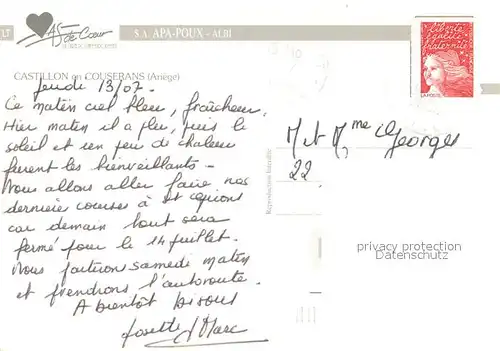 As de Cœur
S.A. APA-POUX - ALBI
liberté
égalité
fraternité
LA POSTE
CASTILLON en COUSERANS (Ariège)
Jeudi 13/07.
Ce matin ciel bleu, fraîcheur
Hier matin il a plu, puis le
soleil et un peu de chaleur
furent les bienveillants -
Nous allons aller faire nos
dernière courses à St Girons
car demain tout sera
fermé pour le 14 juillet.
Nous partirons samedi matin
et prendrons l'autoroute.
A bientôt bisous
Josette Marc
M et Mme Georges
22
Reproduction interdite
privacy protection
Datenschutz